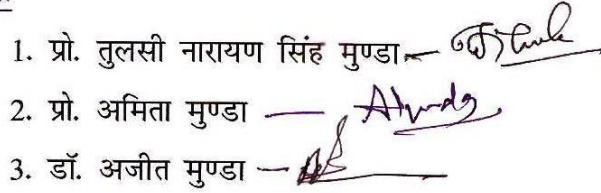 1. प्रो. तुलसी नारायण सिंह मुण्डा –
2. प्रो. अमिता मुण्डा — AMunda
3. डॉ. अजीत मुण्डा –